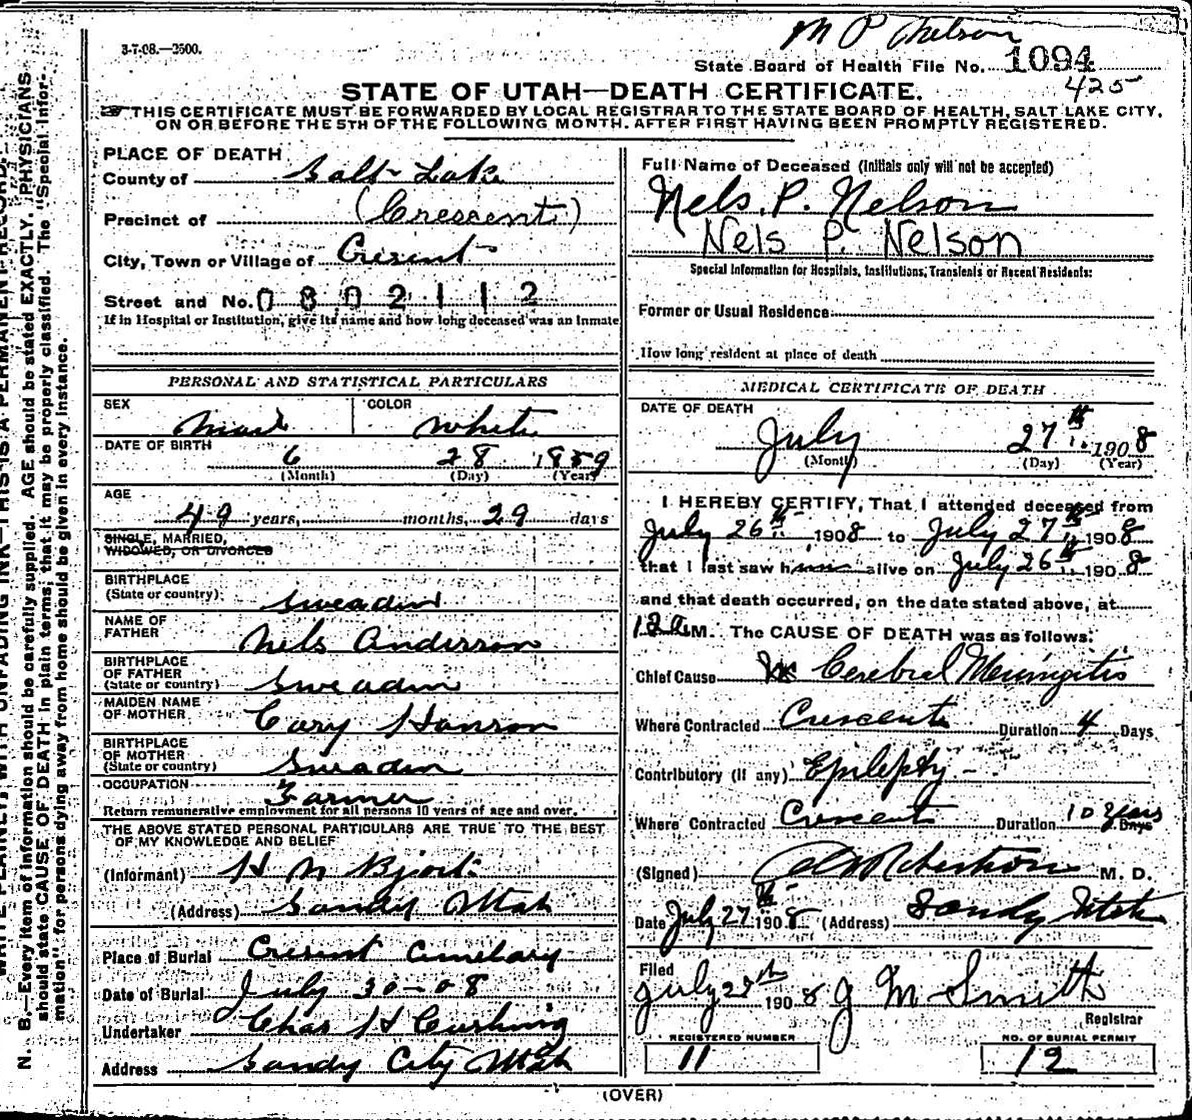 3-7-08.—2500.
M P Nelson
State Board of Health File No. 1094
425
STATE OF UTAH—DEATH CERTIFICATE.
THIS CERTIFICATE MUST BE FORWARDED BY LOCAL REGISTRAR TO THE STATE BOARD OF HEALTH, SALT LAKE CITY,
ON OR BEFORE THE 5TH OF THE FOLLOWING MONTH. AFTER FIRST HAVING BEEN PROMPTLY REGISTERED.
PLACE OF DEATH
County of Salt Lake
Precinct of (Crescent)
City, Town or Village of Cresent
Street and No. 0802112
If in Hospital or Institution, give its name and how long deceased was an Inmate
PERSONAL AND STATISTICAL PARTICULARS
SEX Male COLOR White
DATE OF BIRTH
6 28 1859
(Month) (Day) (Year)
AGE
49 years, months, 29 days
SINGLE, MARRIED,
WIDOWED, OR DIVORCED
BIRTHPLACE
(State or country) Sweadin
NAME OF
FATHER Nels Anderson
BIRTHPLACE
OF FATHER
(State or country) Sweadin
MAIDEN NAME
OF MOTHER Cary Hanson
BIRTHPLACE
OF MOTHER
(State or country) Sweadin
OCCUPATION
Farmer
Return remunerative employment for all persons 10 years of age and over.
THE ABOVE STATED PERSONAL PARTICULARS ARE TRUE TO THE BEST
OF MY KNOWLEDGE AND BELIEF
(Informant) H N
(Address) Sandy Utah
Place of Burial Cresent Cemetary
Date of Burial July 30-08
Undertaker Chas H Cushing
Address Sandy City Utah
Full Name of Deceased (Initials only will not be accepted)
Nels. P. Nelson
Nels P. Nelson
Special Information for Hospitals, Institutions, Transients or Recent Residents:
Former or Usual Residence
How long resident at place of death
MEDICAL CERTIFICATE OF DEATH
DATE OF DEATH
July 27th 1908
(Month) (Day) (Year)
I HEREBY CERTIFY, That I attended deceased from
July 26th 1908 to July 27th 1908
that I last saw him alive on July 26th 1908
and that death occurred, on the date stated above, at
12 a M. The CAUSE OF DEATH was as follows:
Chief Cause Cerebral Meningitis
Where Contracted Crescent Duration 4 Days
Contributory (if any) Epilepty -
Where Contracted Crescent Duration 10 Years Days
(Signed) Robertson M. D.
Date July 27th 1908 (Address) Sandy Utah
Filed
July 28th 1908 J M Smith
Registrar
REGISTERED NUMBER
11
NO. OF BURIAL PERMIT
12
(OVER)
WRITE PLAINLY, WITH UNFADING INK—THIS IS A PERMANENT RECORD.
N. B.—Every item of information should be carefully supplied. AGE should be stated EXACTLY. PHYSICIANS
should state CAUSE OF DEATH in plain terms, that it may be properly classified. The "Special Infor-
mation" for persons dying away from home should be given in every instance.